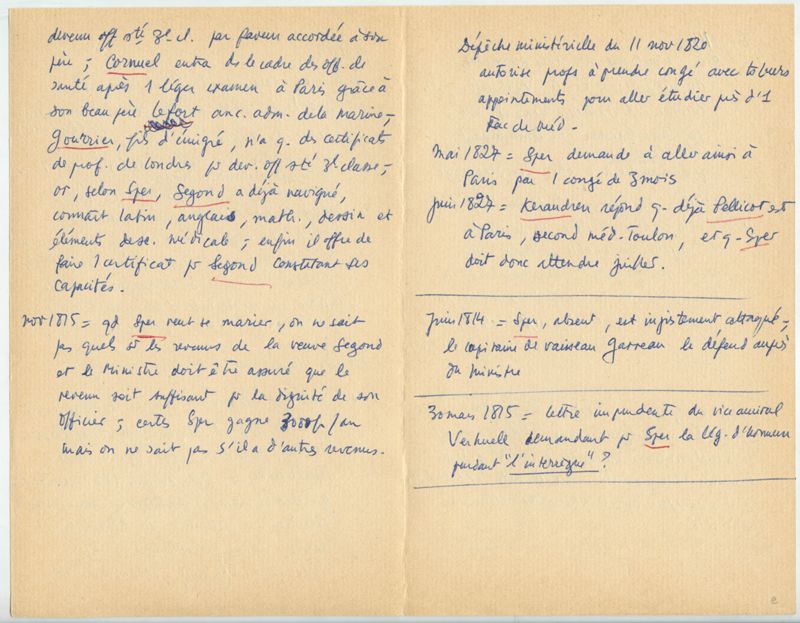 devenu off sté 3e cl. par faveur accordée à son
père ; Cornuel entra ds le cadre des off. de
santé après 1 léger examen à Paris grâce à
son beau père Lefort anc. adm. de la marine -,
Gourrier, fils d'émigré, n'a q. des certificats
de prof. de Londres pr dev. off sté 3e classe -,
or, selon Sper, Segond a déjà navigué,
connaît latin, anglais, math., dessin et
éléments de sc. médicale ; enfin il offre de
faire 1 certificat pr Segond constatant ses
capacités.
nov 1815 = qd Sper veut se marier, on ne sait
pas quels st les revenus de la veuve Segond
et le Ministre doit être assuré que le
revenu soit suffisant pr la dignité de son
officier ; certes Sper gagne 3000f/an
mais on ne sait pas s'il a d'autres revenus.
Dépêche ministérielle du 11 nov 1820
autorise profs à prendre congé avec tjours
appointements pour aller étudier près d'1
Fac de méd.
Mai 1827 = Sper demande à aller ainsi à
Paris par 1 congé de 3 mois
juin 1827 = Keraudren répond q. déjà Pellicot est
à Paris, second méd. Toulon, et q. Sper
doit donc attendre juillet.
Juin 1814 = Sper, absent, est injustement attaqué -,
le capitaine de vaisseau Garreau le défend auprès
du ministre
30 mars 1815 = lettre imprudente du vice amiral
Verhuell demandant pr Sper la lég. d'honneur
pendant "l'interrègne" ?